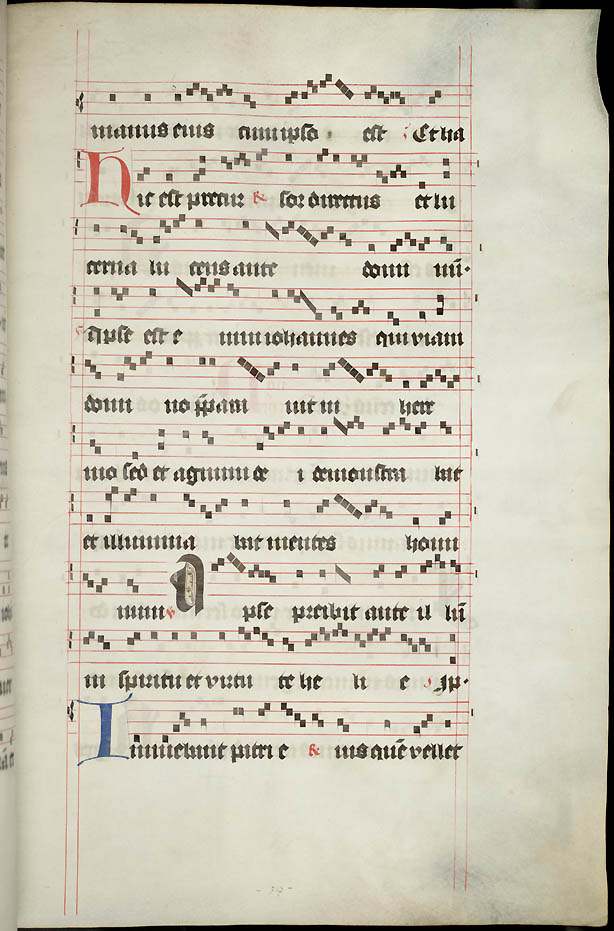 manus eius cum ipso est Et ha
Hic est precur R sor directus et lu
cerna lu cens ante domi nū·
Ipse est e nim iohannes qui viam
domi no p̄pam uit in here
mo sed et agnum de i demonstra uit
et illumina uit mentes homi
num V Ipse preibit ante il lū
in spiritu et virtu te he li e Ip·
Innuebant patri e R ius quē vellet
317